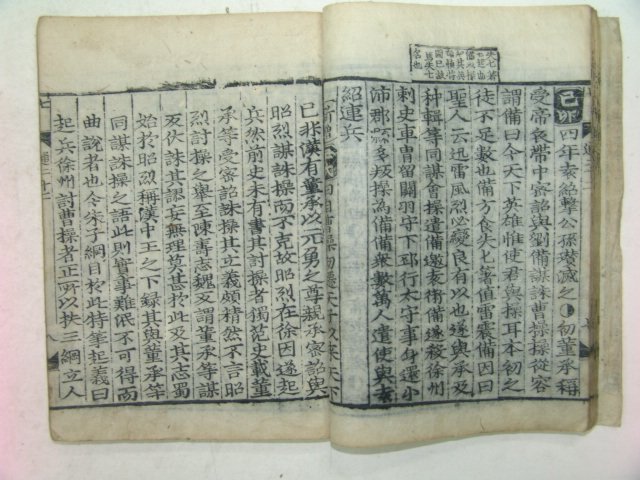 己卯四年袁紹擊公孫瓚滅之○初董承稱
受帝衣帶中密詔與劉備謀誅曹操操從容
謂備曰今天下英雄惟使君與操耳本初之
徒不足數也備方食失匕著值雷震備因曰
聖人云迅雷風烈必變良有以也遂與承及
种輯等同謀會操遣備邀袁術備遂殺徐州
刺史車冑留關羽守下邳行太守事身還小
沛郡縣多叛操為備備衆數萬人遣使與袁
紹連兵
天子以來天下
已非漢有董承以元舅之尊親承密詔與
昭烈謀誅操而不克故昭烈在徐因遂起
兵然前史未有書其討操者獨范史載董
承等受密詔誅操其立義頗精然不言昭
烈討操之舉至陳壽志魏反謂董承等謀
反伏誅其謬妄無理莫甚於此及其志蜀
始於昭烈稱漢中王之下録其與董承等
同謀誅操之語此則實事難泯不可得而
曲說者也今朱子綱目於此特筆起義曰
起兵徐州討曹操者正所以扶三綱立人